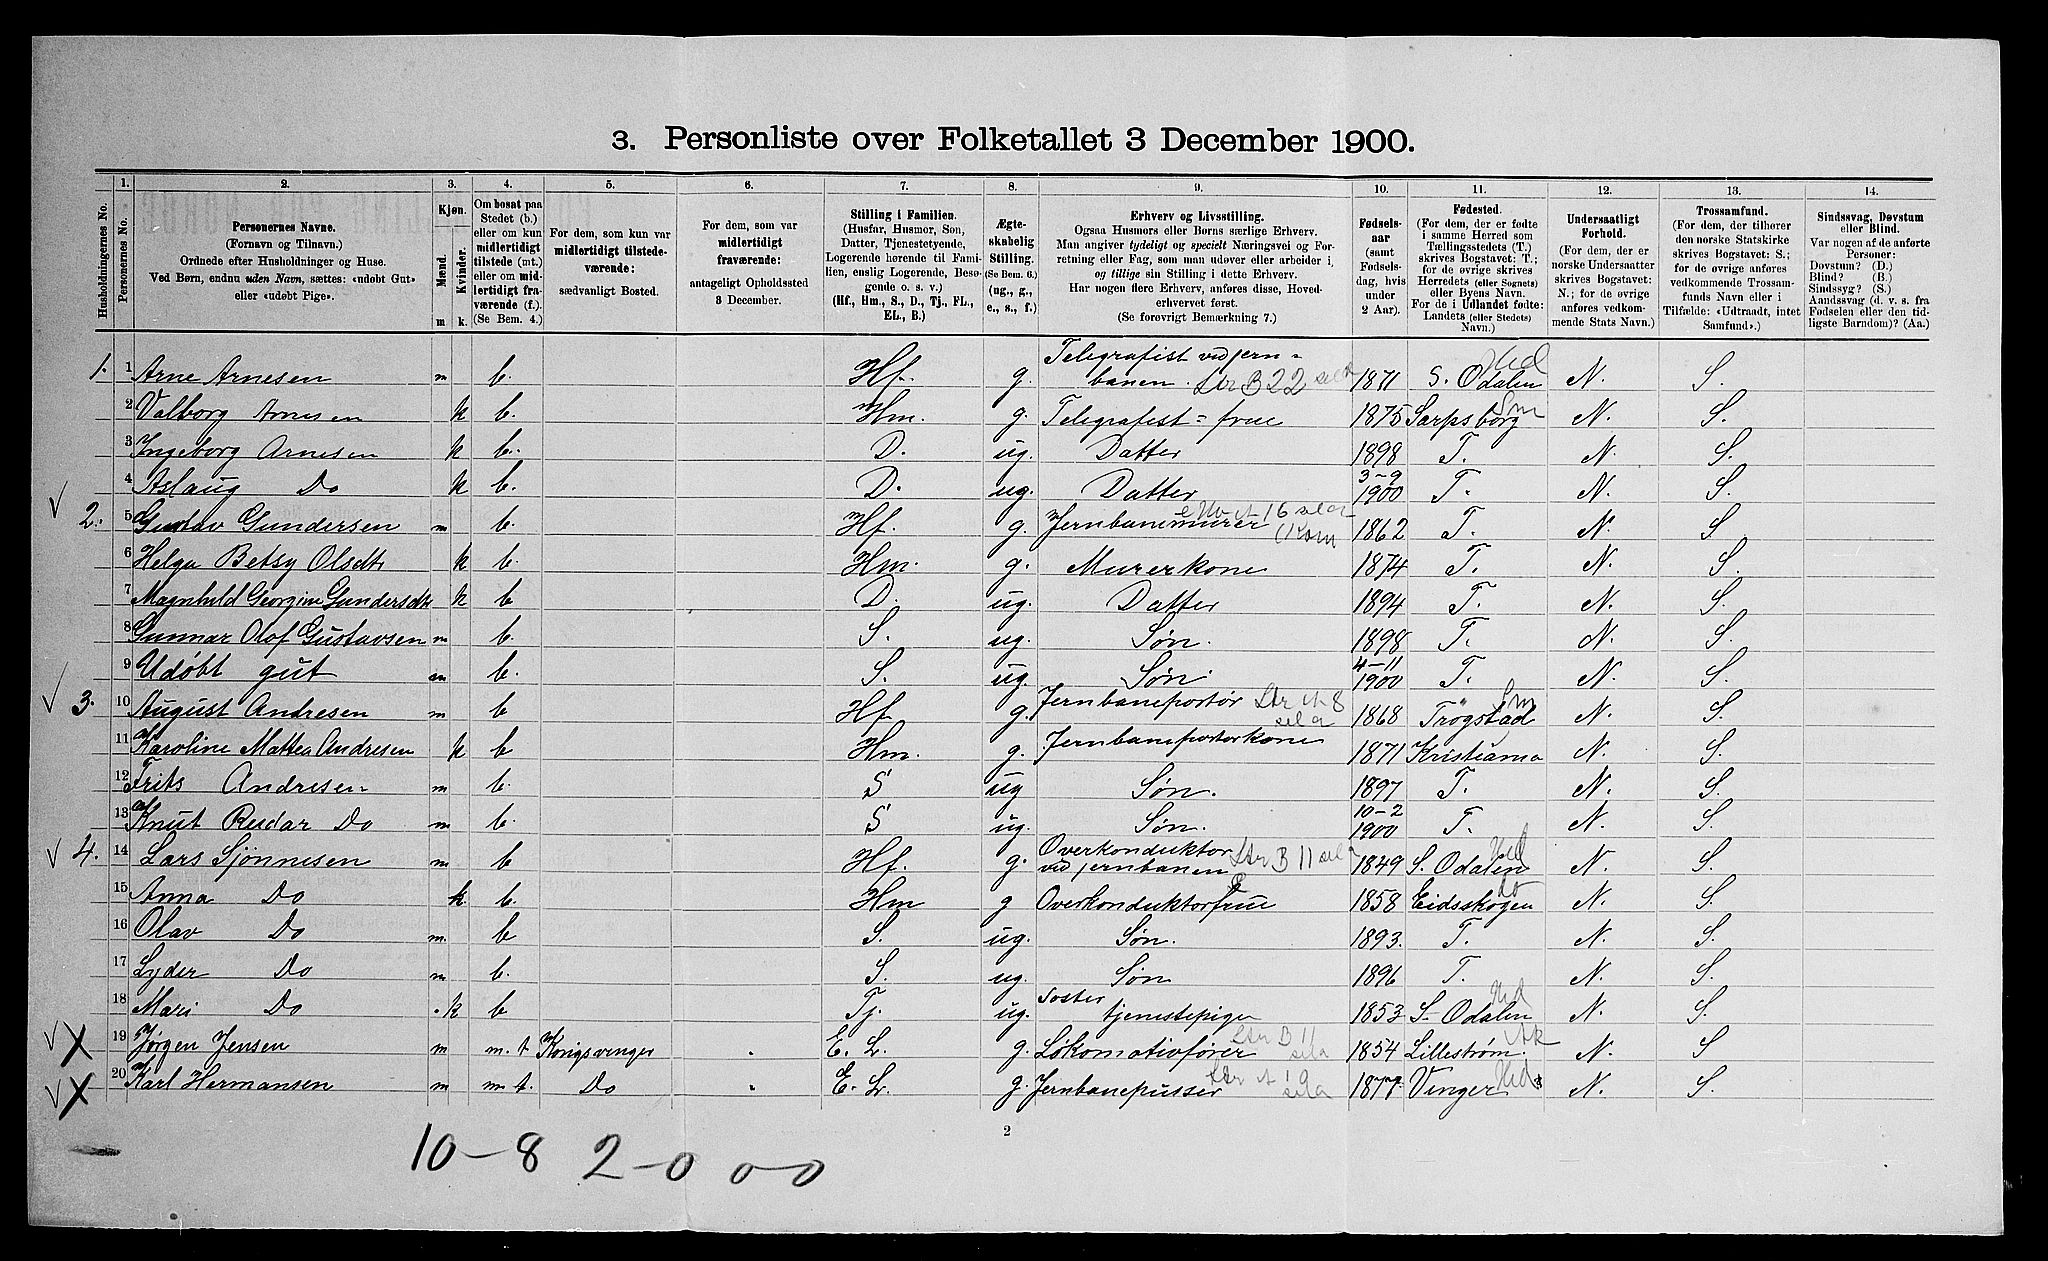 3. Personliste over Folketallet 3 December 1900.
1. 2. 3. 4. 5. 6. 7. 8. 9. 10. 11. 12. 13. 14.
Husholdningernes No.
Personernes No.
Personernes Navne.
(Fornavn og Tilnavn.)
Ordnede efter Husholdninger og Huse.
Ved Børn, endnu uden Navn, sættes: «udøbt Gut»
eller «udøbt Pige».
Kjøn.
Mænd.
Kvinder.
m k.
Om bosat paa
Stedet (b.)
eller om kun
midlertidigt
tilstede (mt.)
eller om mid-
lertidigt fra-
værende (f.).
(Se Bem. 4.)
For dem, som kun var
midlertidigt tilstede-
værende:
sædvanligt Bosted.
For dem, som var
midlertidigt
fraværende:
antageligt Opholdssted
3 December.
Stilling i Familien.
(Husfar, Husmor, Søn,
Datter, Tjenestetyende,
Logerende hørende til Fami-
lien, enslig Logerende, Besø-
gende o. s. v.)
(Hf., Hm., S., D., Tj., FL.,
EL., B.)
Ægte-
skabelig
Stilling.
(Se Bem. 6.)
(ug., g.,
e., s., f.)
Erhverv og Livsstilling.
Ogsaa Husmors eller Børns særlige Erhverv.
Man angiver tydeligt og specielt Næringsvei og For-
retning eller Fag, som man udøver eller arbeider i,
og tillige sin Stilling i dette Erhverv.
Har nogen flere Erhverv, anføres disse, Hoved-
erhvervet først.
(Se forøvrigt Bemærkning 7.)
Fødsels-
aar
(samt
Fødsels-
dag, hvis
under
2 Aar).
Fødested.
(For dem, der er fødte
i samme Herred som
Tællingsstedets (T.)
skrives Bogstavet: T.;
for de øvrige skrives
Herredets (eller Sognets)
eller Byens Navn.
For de i Udlandet fødte:
Landets (eller Stedets)
Navn.)
Undersaatligt
Forhold.
(For dem, der er
norske Undersaatter
skrives Bogstavet:
N.; for de øvrige
anføres vedkom-
mende Stats Navn.)
Trossamfund.
(For dem, der tilhører
den norske Statskirke
skrives Bogstavet: S.;
for de øvrige anføres
vedkommende Trossam-
funds Navn eller i
Tilfælde: «Udtraadt, intet
Samfund».)
Sindssvag, Døvstum
eller Blind.
Var nogen af de anførte
Personer:
Døvstum? (D.)
Blind? (B.)
Sindssyg? (S.)
Aandssvag (d. v. s. fra
Fødselen eller den tid-
ligste Barndom)? (Aa.)
1. 1 Arne Arnesen m b. Hf. g. Telegrafist ved jern=banen. Ltr B 22 1871 S. Odalen Hed N. S.
2 Valborg Arnesen k b. Hm. g. Telegrafist=frue 1875 Sarpsborg Sm N. S.
3 Ingeborg Arnesen k b. D. ug. Datter 1898 T. N. S.
4 Aslaug Do k b. D. ug. Datter 3-9 1900 T. N. S.
√ 2. 5 Gustav Gundersen m b. Hf. g. Jernbanemurer 1862 T. N. S
6 Helga Betsy Olsdtr k b. Hm. g. Murerkone 1874 T. N. S.
7 Magnhild Georgine Gundersdtr k b D. ug. Datter 1894 T. N. S.
8 Gunnar Olof Gustavsen m b. S. ug. Søn. 1898 T. N. S.
9 Udøbt gut m b. S. ug. Søn. 4-11 1900 T. N. S.
√ 3. 10 August Andresen m b. Hf. g. Jernbaneportør 1868 Trøgstad Sm N. S.
11 Karoline Mathea Andresen k b Hm. g. Jernbaneportørkone 1871 Kristiania N. S.
12 Frits Andresen m b. S ug Søn. 1897 T. N. S.
13 Knut Reidar Do m b. S ug. Søn. 10-2 1900 T. N. S.
√ 4. 14 Lars Sjønnesen m b Hf. g. Overkonduktør ved jernbanen Ltr B 11 1849 S. Odalen Hed N. S.
15 Anna Do k. b. Hm g Overkonduktørfrue 1858 Eidsskogen do N. S.
16 Olav Do m. b S. ug. Søn. 1893. T. N. S.
17 Lyder Do m b. S. ug. Søn 1896 T. N. S.
18 Mari Do k b Tj. ug. søster tjenestepige 1853 S. Odalen Hed N. S.
√ X 19 Jørgen Jensen m m. t Kongsvinger E. L. g. Lokomotivfører Ltr B 11 1854 Lillestrøm. Ak N. S
√ X 20 Karl Hermansen m m. t. Do E. L. g. Jernbanepusser 1877 Vinger Hed N. S.
2
10-8 2-0 0-0